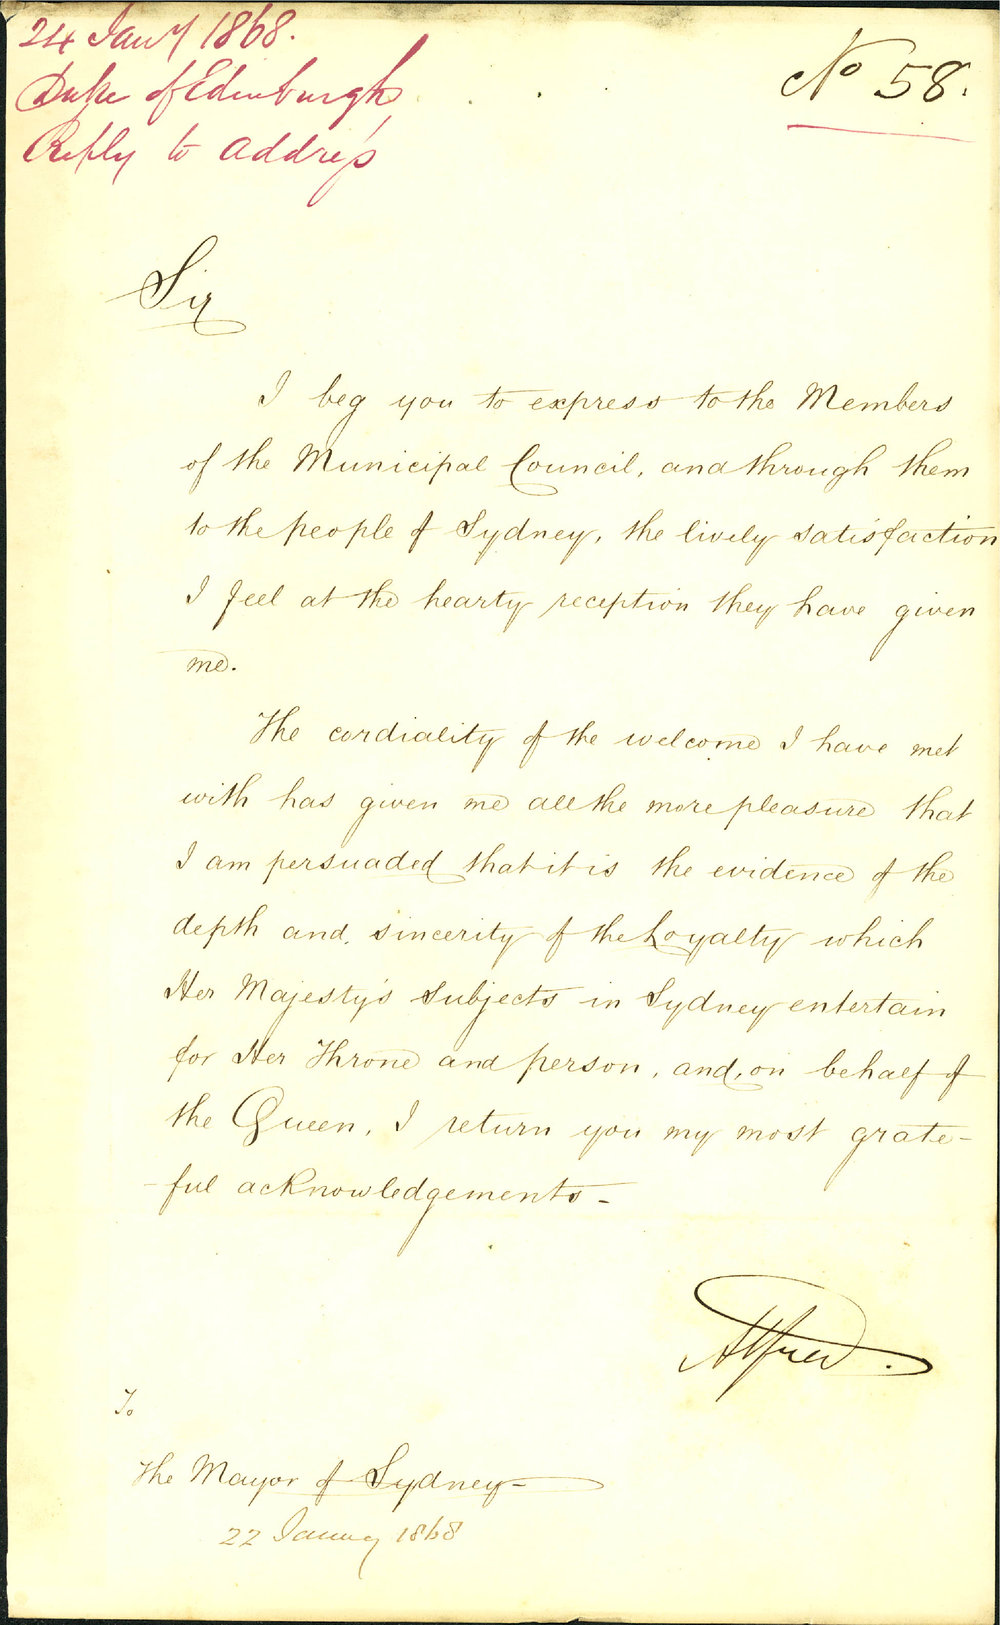 24 Jany 1868.
Duke of Edinburgh
Reply to Address
No 58.
Sir
I beg you to express to the Members
of the Municipal Council, and through them
to the people of Sydney, the lively satisfaction
I feel at the hearty reception they have given
me.
The cordiality of the welcome I have met
with has given me all the more pleasure that
I am persuaded that it is the evidence of the
depth and, sincerity of the Loyalty which
Her Majesty's Subjects in Sydney entertain
for Her Throne and person, and, on behalf of
the Queen, I return you my most grate-
-ful acknowledgements-
Alfred.
To
The Mayor of Sydney-
22 January 1868